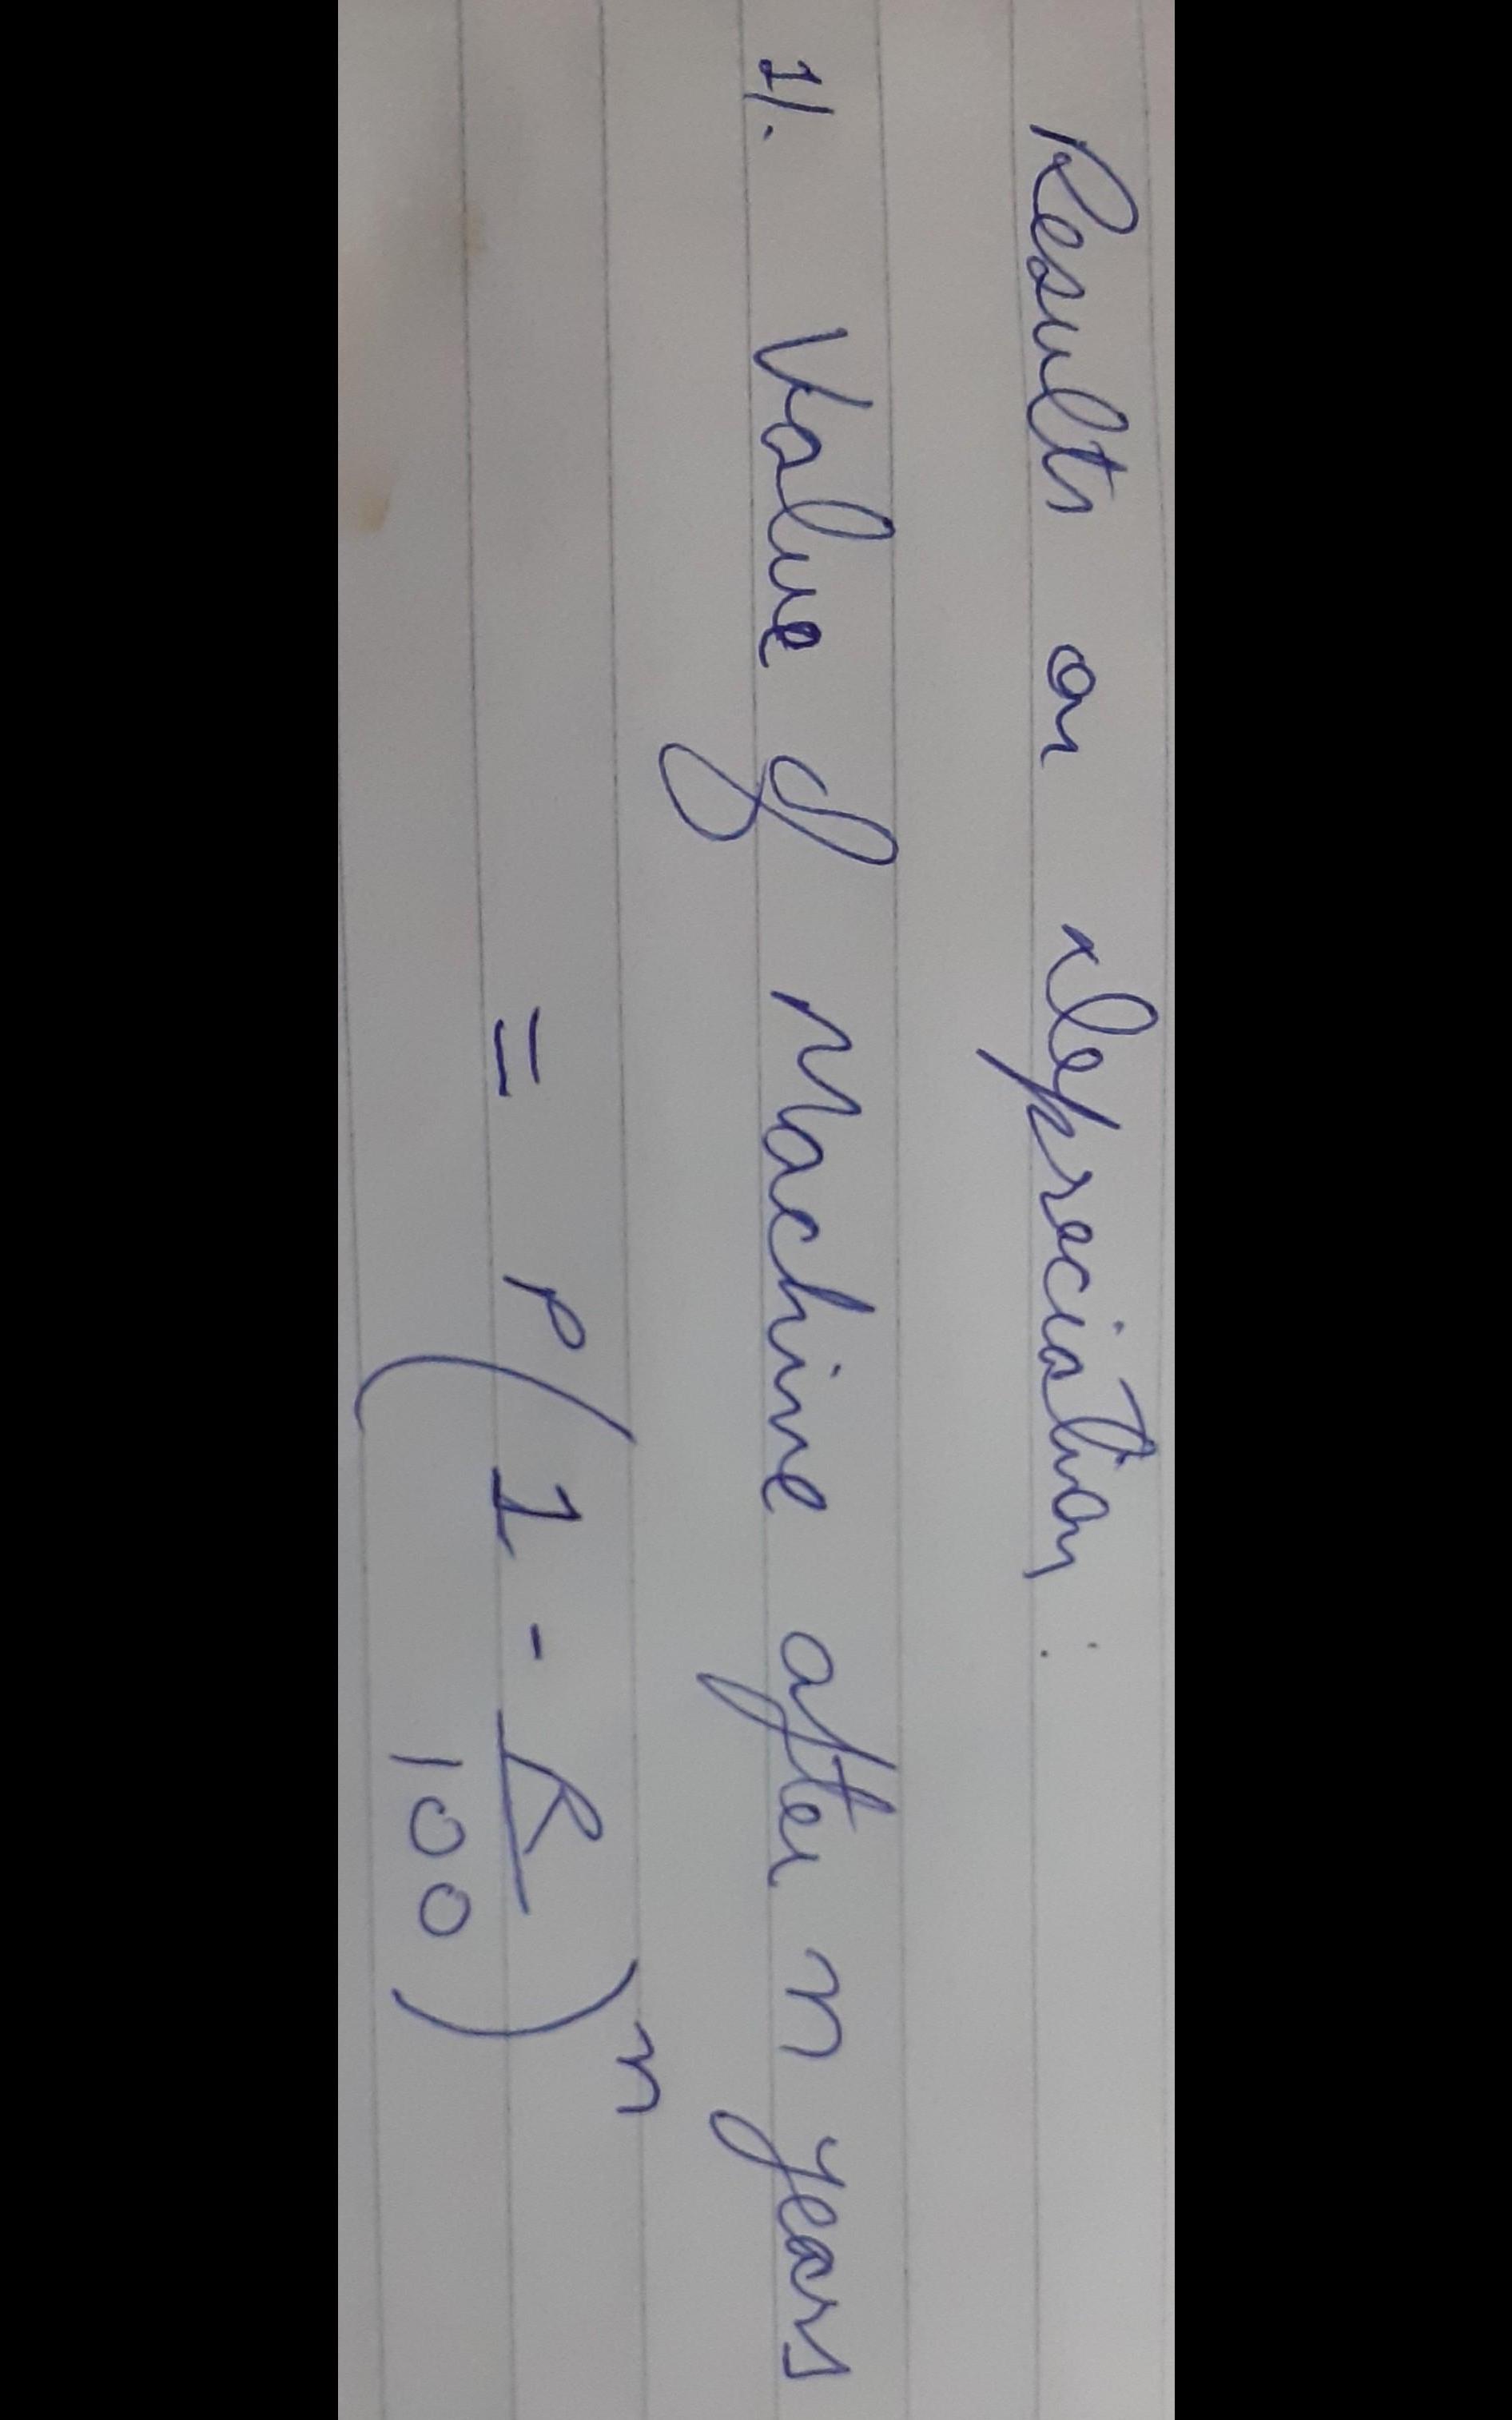 Results on depreciation:
1). Value of Machine after n years
= P(1 - R/100)^n